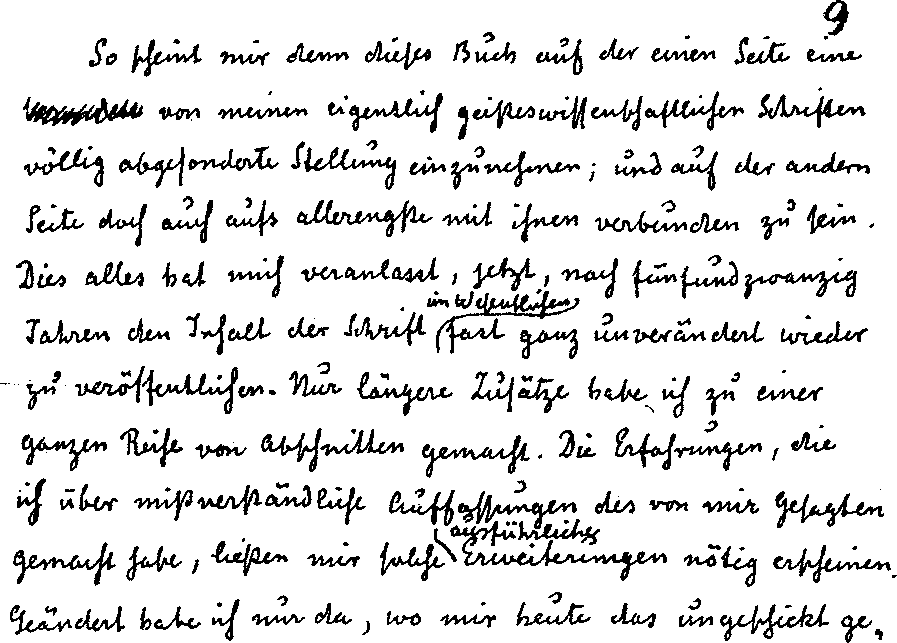 9
So scheint mir denn dieses Buch auf der einen Seite eine
von meinen eigentlich geisteswissenschaftlichen Schriften
völlig abgesonderte Stellung einzunehmen; und auf der andern
Seite doch auch aufs allerengste mit ihnen verbunden zu sein.
Dies alles hat mich veranlasst, jetzt, nach fünfundzwanzig
im Wesentlichen
Jahren den Inhalt der Schrift fast ganz unverändert wieder
zu veröffentlichen. Nur längere Zusätze habe ich zu einer
ganzen Reihe von Abschnitten gemacht. Die Erfahrungen, die
ich über mißverständliche Auffassungen des von mir Gesagten
ausführliche
gemacht habe, ließen mir solche Erweiterungen nötig erscheinen.
Geändert habe ich nur da, wo mir heute das ungeschickt ge„